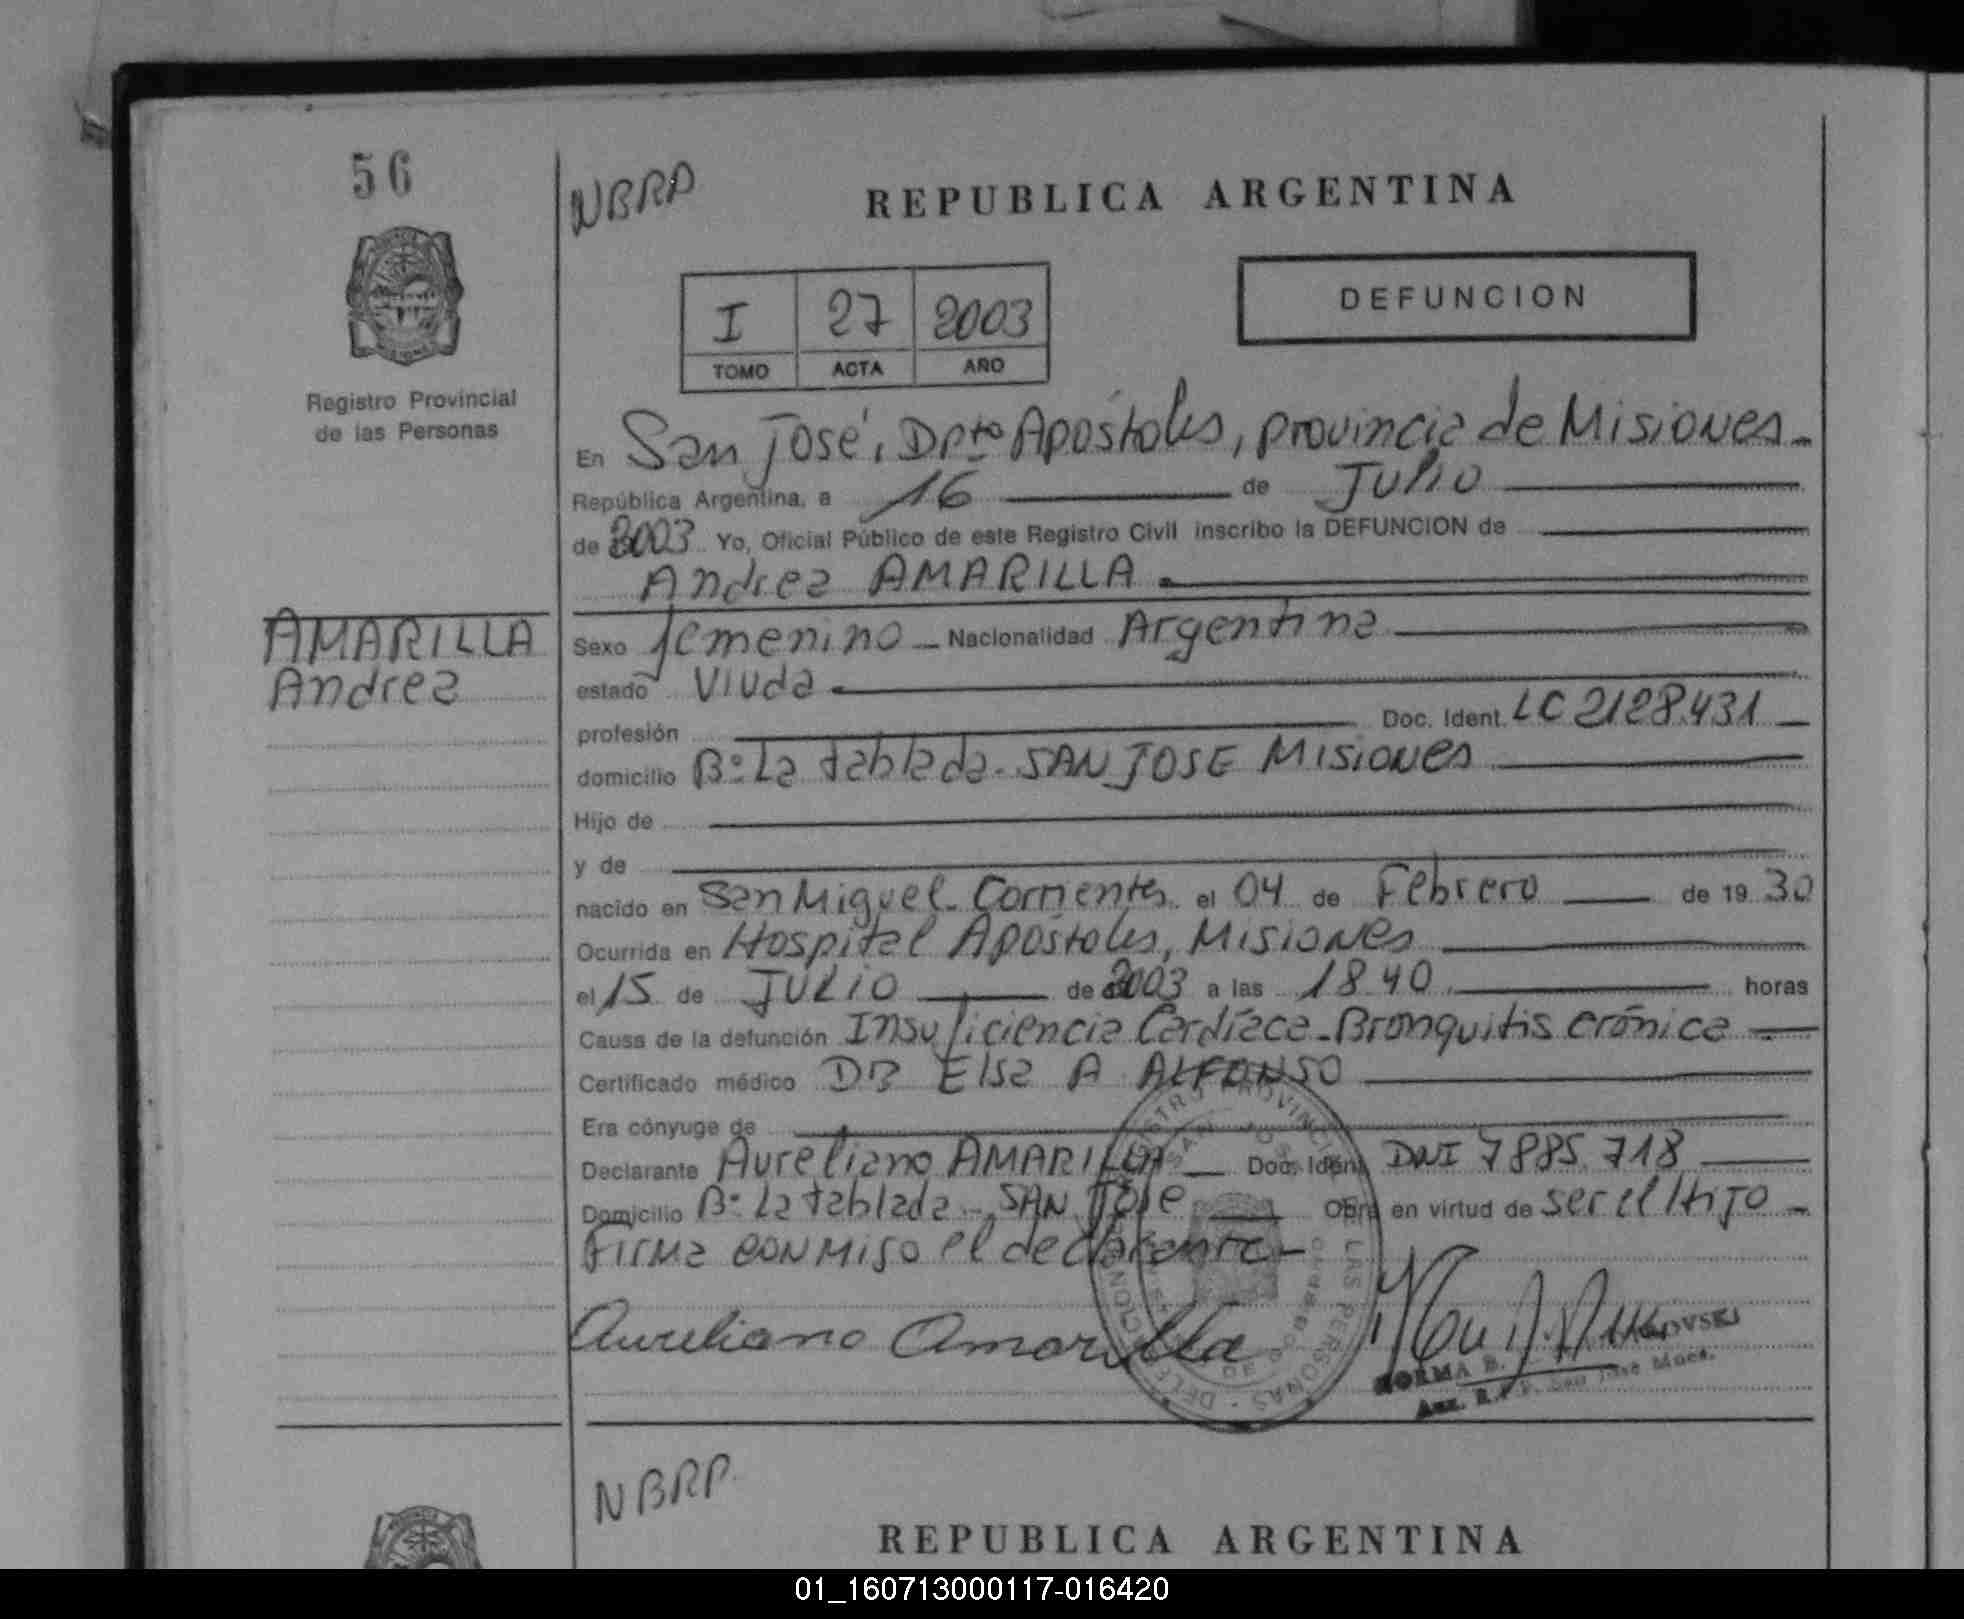 56
NBRP
REPUBLICA ARGENTINA
I 27 2003
TOMO ACTA AÑO
DEFUNCION
Registro Provincial
de las Personas
En San José, Dpto Apóstoles, provincia de Misiones.
República Argentina, a 16 de Julio
de 2003 Yo, Oficial Público de este Registro Civil inscribo la DEFUNCION de
Andrea AMARILLA.
AMARILLA
Andrea
Sexo femenino Nacionalidad Argentina
estado Viuda
profesión Doc. Ident. LC 2128.431
domicilio B: La tablada. SAN JOSE Misiones
Hijo de
y de
nacido en San Miguel. Corrientes el 04 de Febrero de 19 30
Ocurrida en Hospital Apóstoles, Misiones
el 15 de JULIO de 2003 a las 18.40 horas
Causa de la defunción Insuficiencia Cardíaca - Bronquitis crónica
Certificado médico DR Elsa A ALFONSO
Era cónyuge de
Declarante Aureliano AMARILLA Doc. Ident. DNI 7885.718
Domicilio B: La tablada - SAN José Obra en virtud de ser el Hijo
Firma conmigo el declarante
Aureliano Amarilla
NORMA B.
Aux. R.P.P. San José Mnes.
NBRP.
REPUBLICA ARGENTINA
01_160713000117-016420